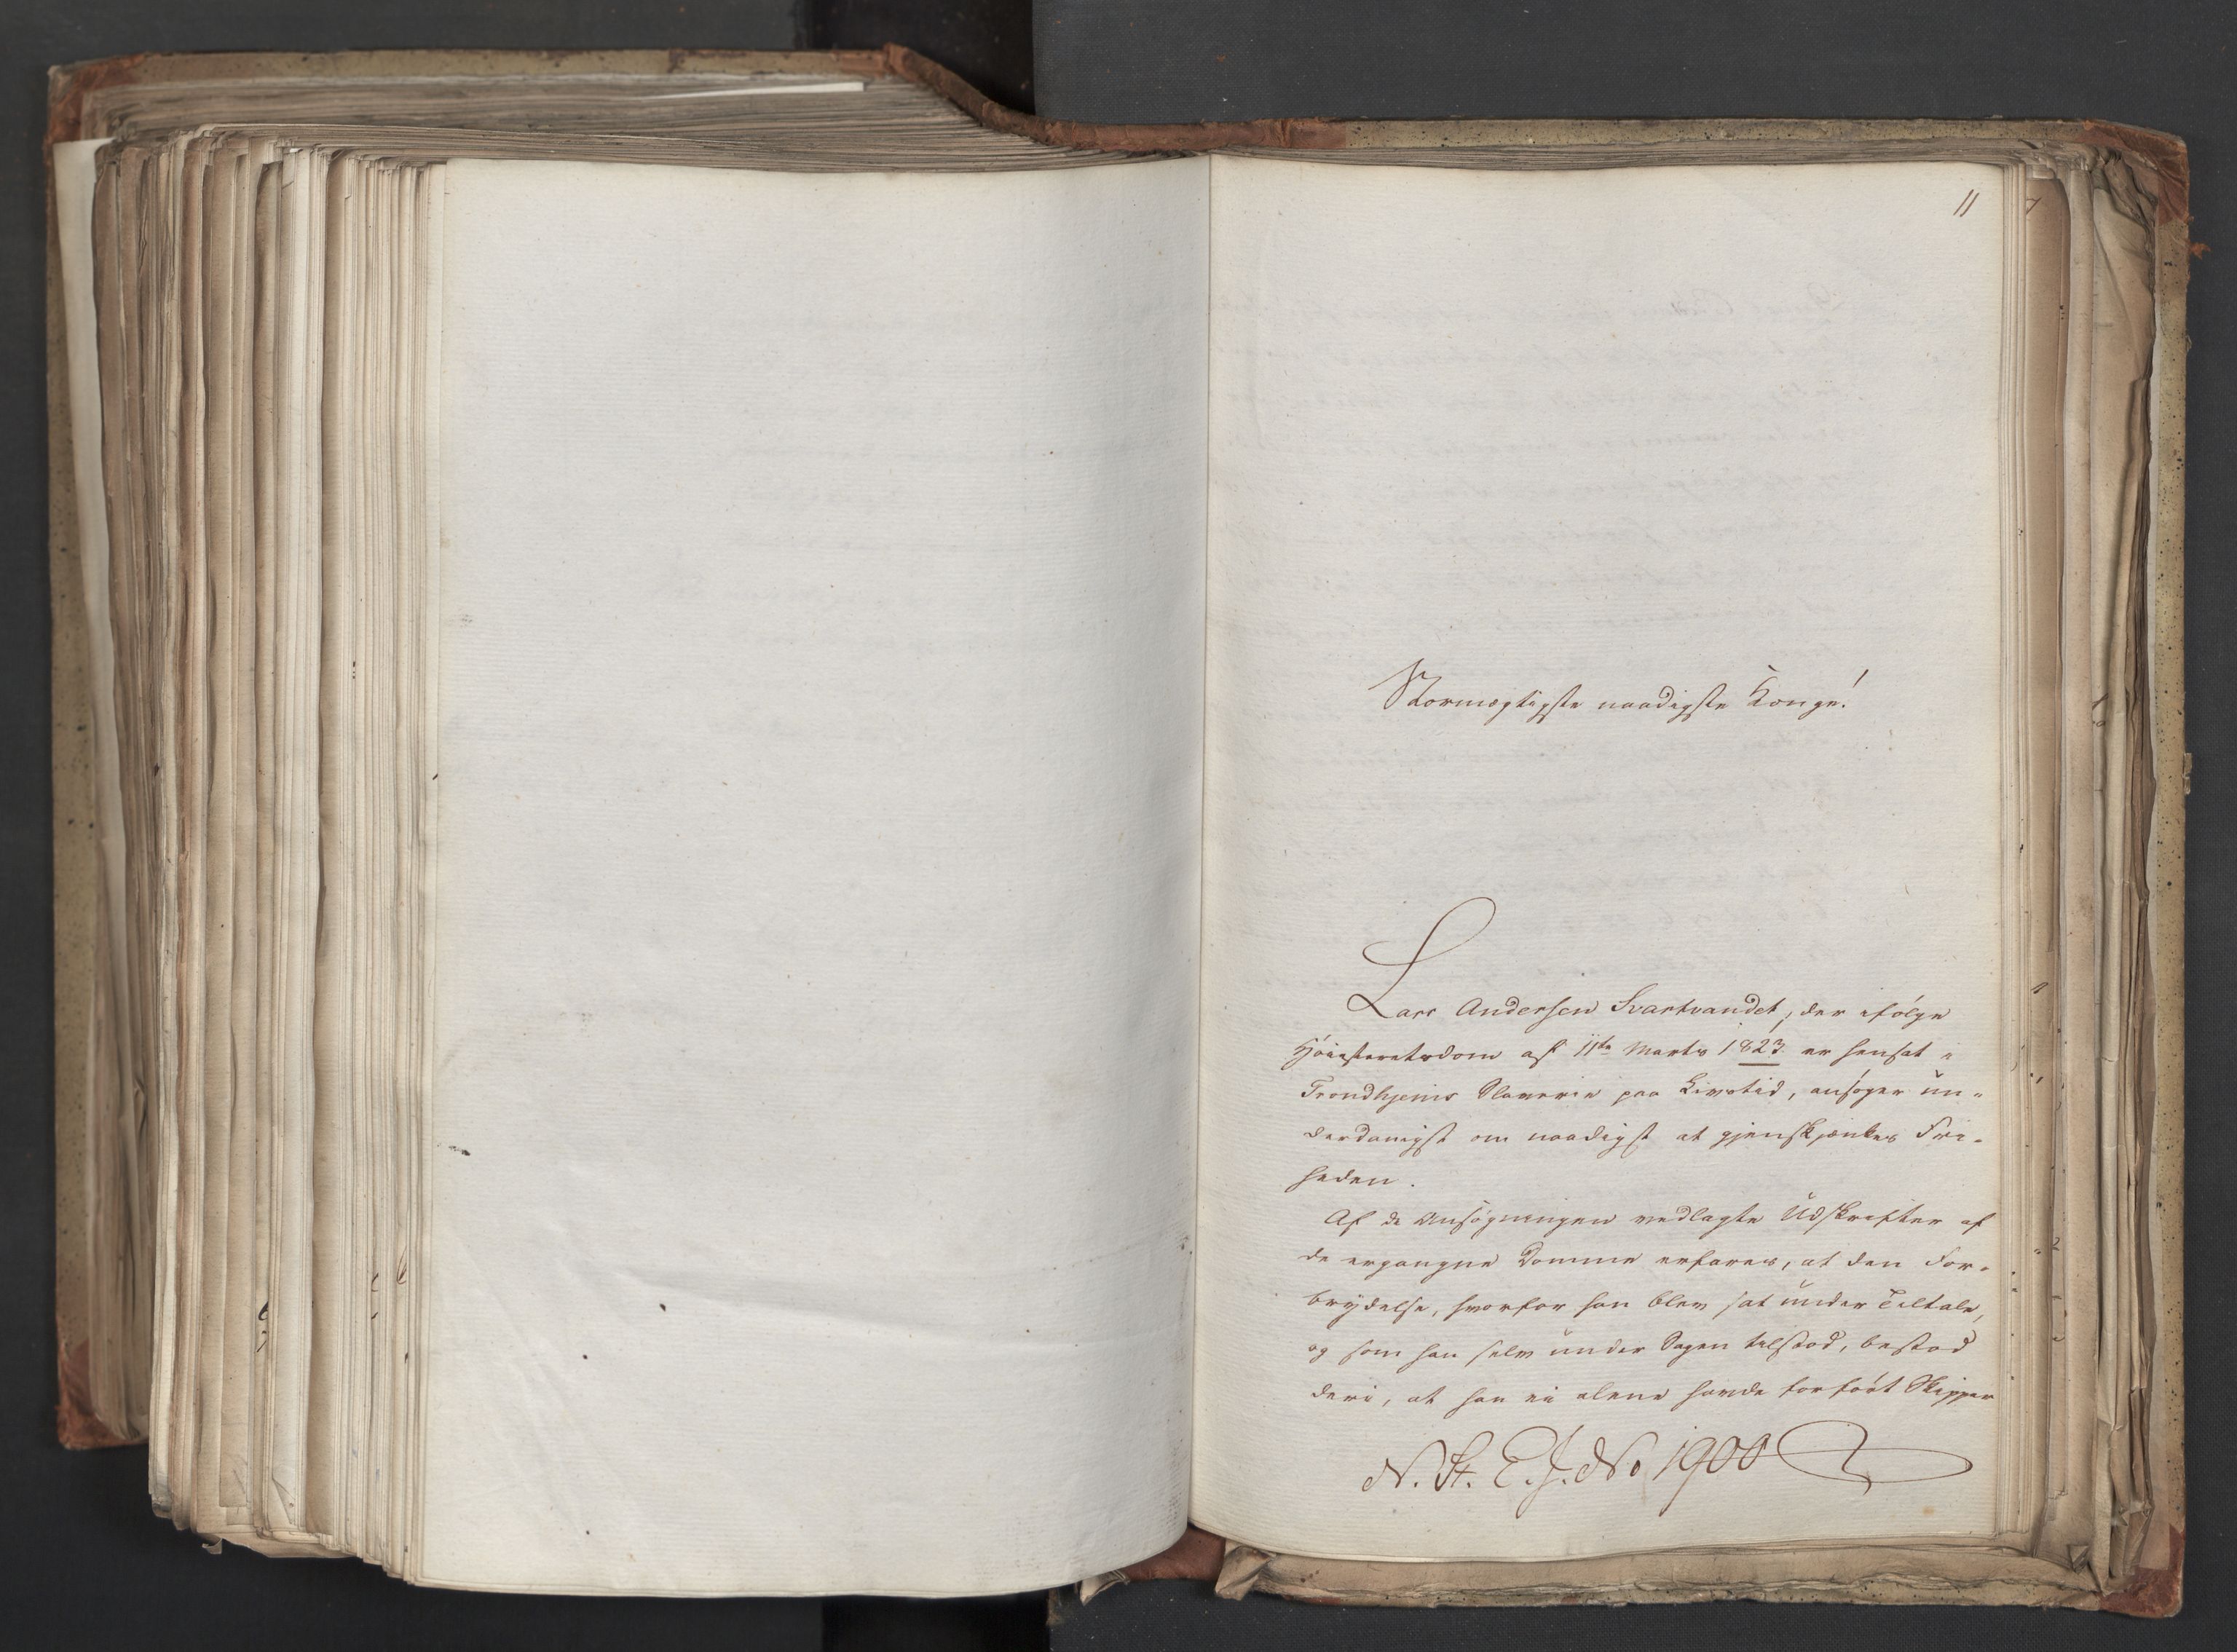 11
Stormægtigste naadigste Konge!
Lars Andersen Svartvandet, der ifølge
Høiesteretsdom af 11te Marts 1823. er hensat i
Trondhjems Slaverie paa Livstid, ansøger un-
derdanigst om naadigst at gjenskjænkes Fri-
heden.
Af de Ansøgningen vedlagte Udskrifter af
de ergangne Domme erfares, at den For-
brydelse, hvorfor han blev sat under Tiltale,
og som han selv under Sagen tilstod, bestod
deri, at han ei alene havde forført Skipper
N. St. E. J. No 1900